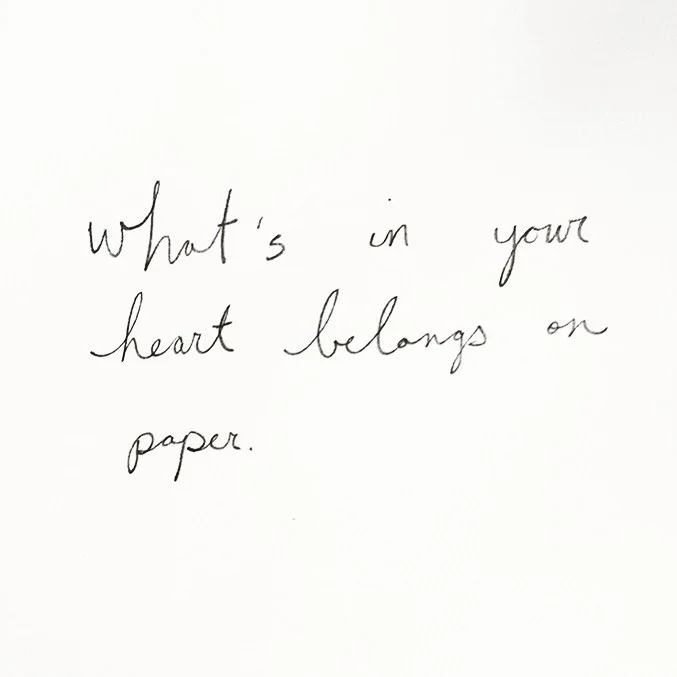 what's in your
heart belongs on
paper.